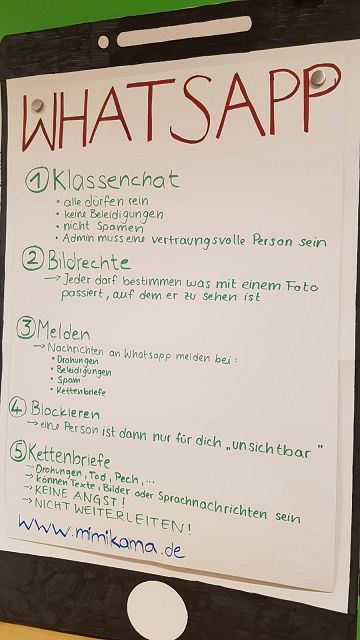 WHATSAPP
① Klassenchat
• alle dürfen rein
• keine Beleidigungen
• nicht Spamen
• Admin muss eine vertraungsvolle Person sein
② Bildrechte
→ Jeder darf bestimmen was mit einem Foto
passiert, auf dem er zu sehen ist
③ Melden
→ Nachrichten an Whatsapp melden bei:
• Drohungen
• Beleidigungen
• Spam
• Kettenbriefe
④ Blockieren
→ eine Person ist dann nur für dich „unsichtbar"
⑤ Kettenbriefe
→ Drohungen, Tod, Pech, ...
→ können Texte, Bilder oder Sprachnachrichten sein
→ KEINE ANGST!
→ NICHT WEITERLEITEN!
www.mimikama.de